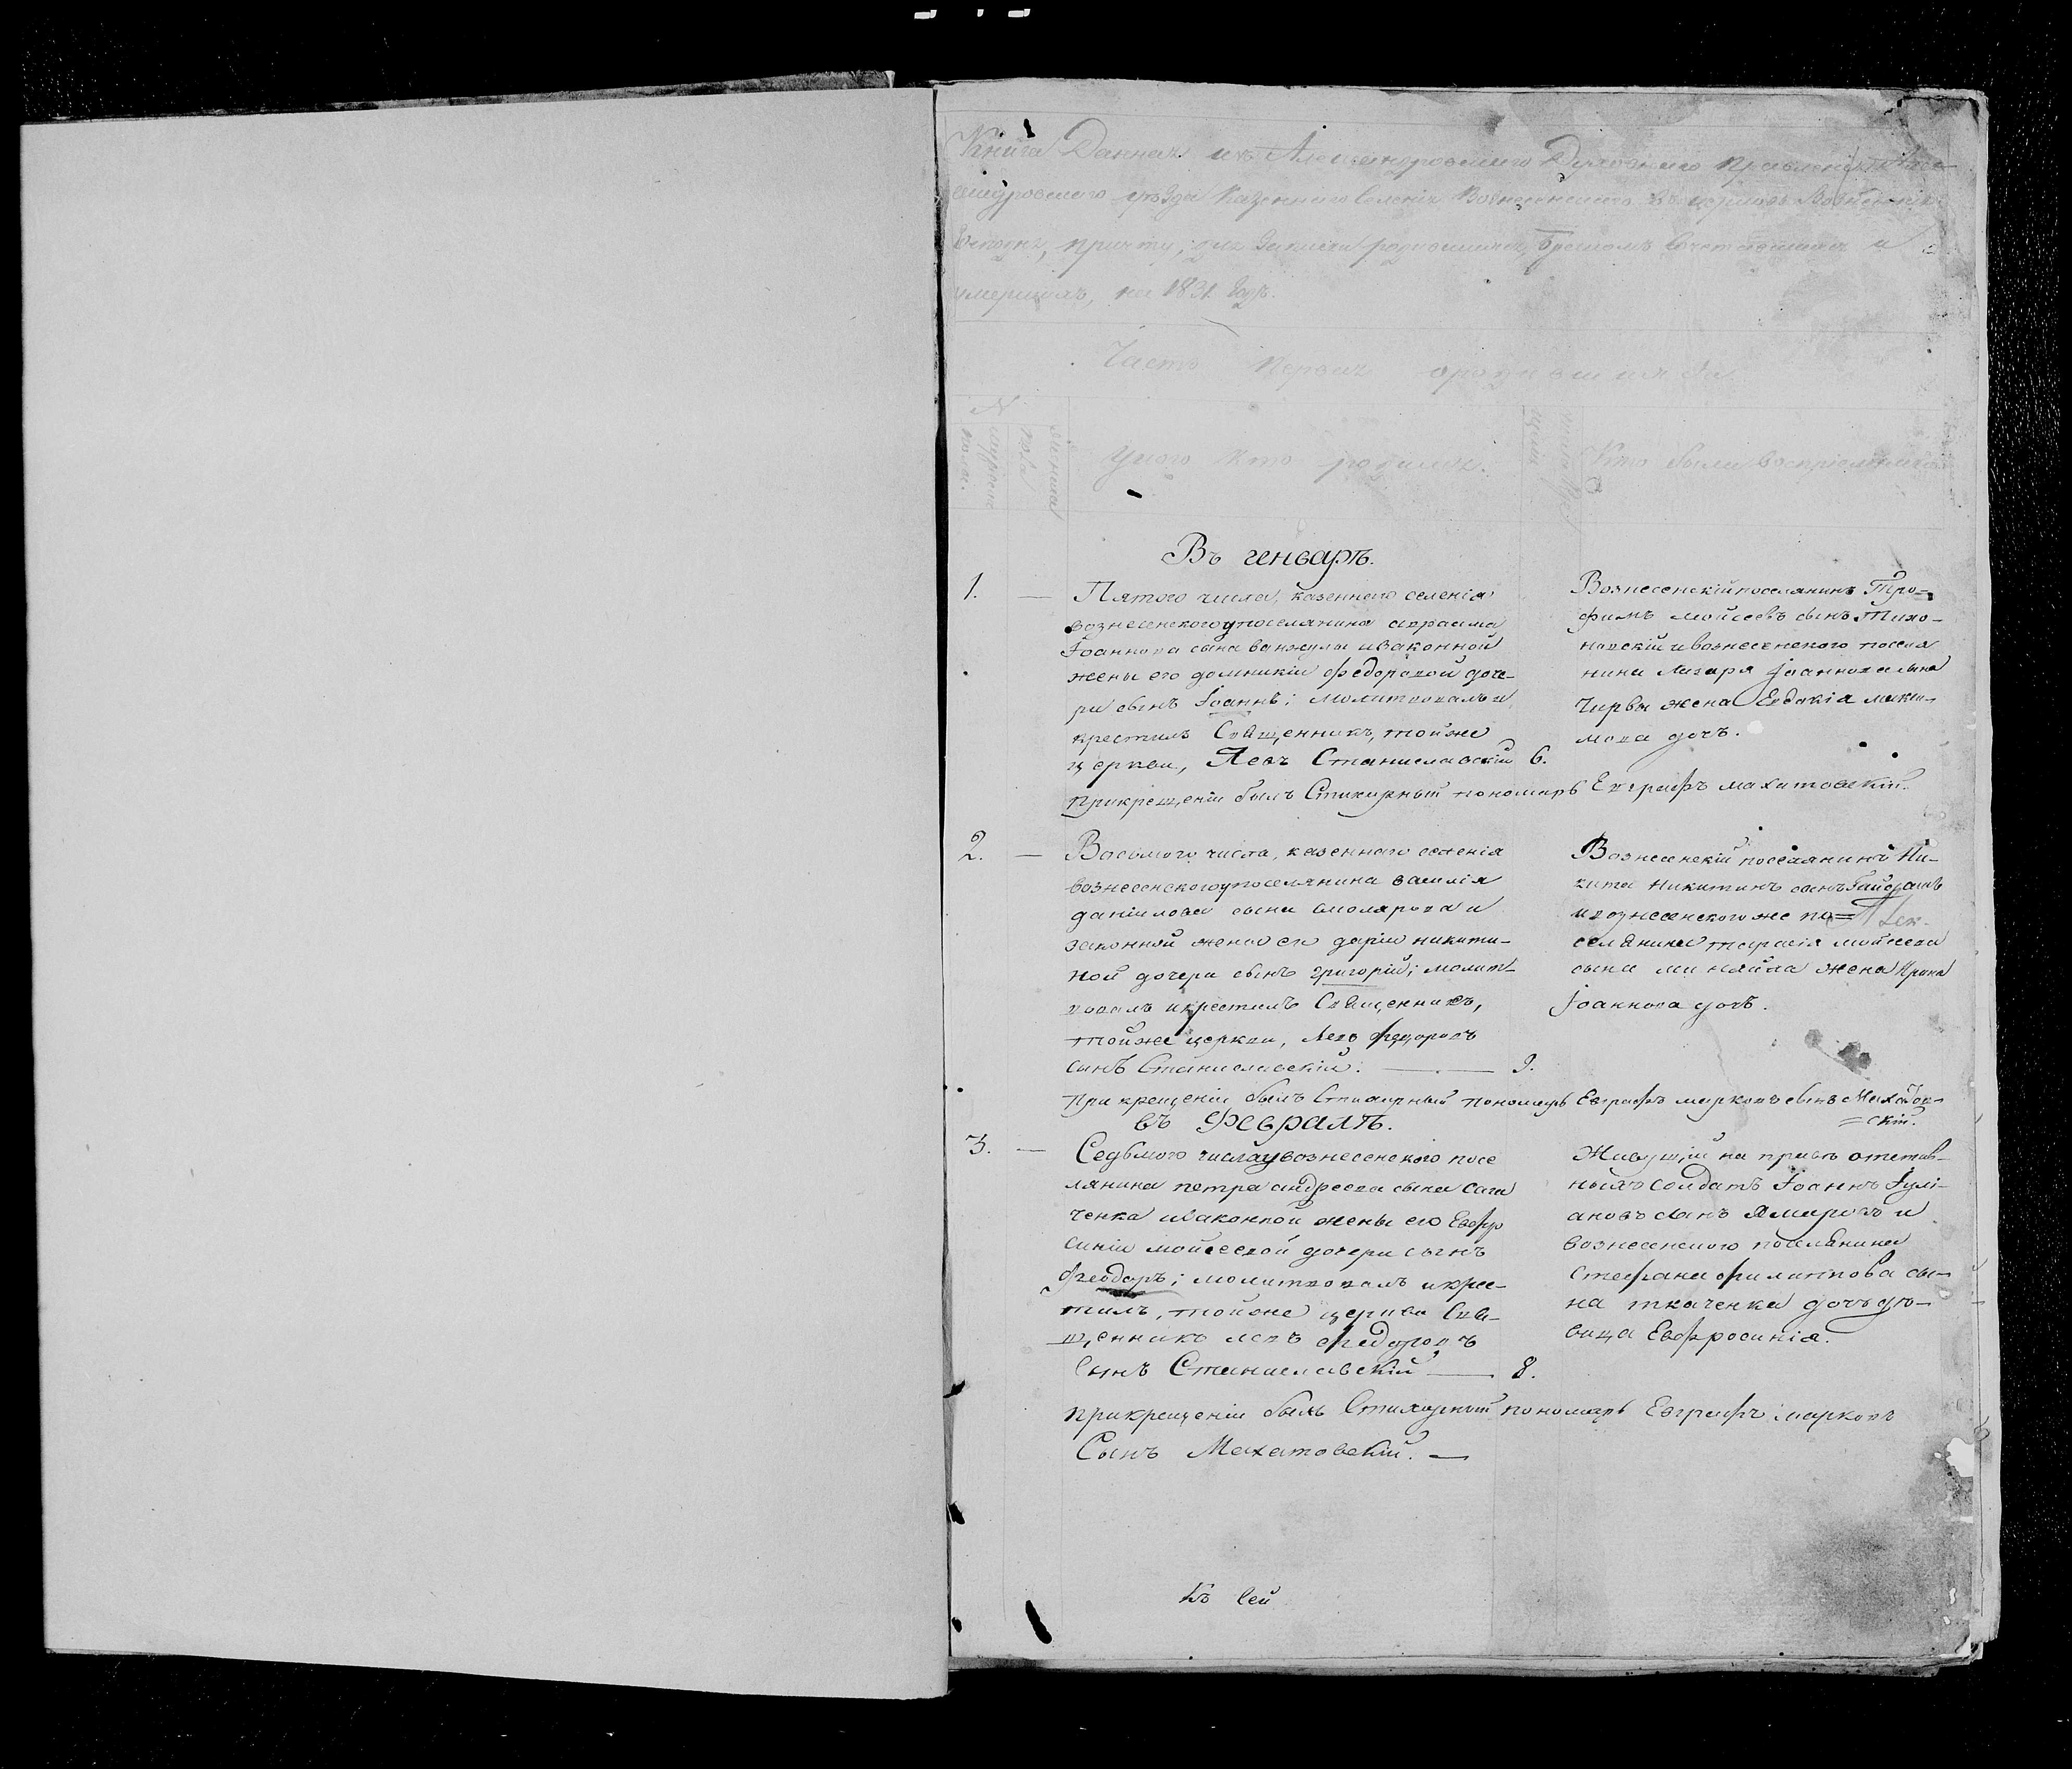 Книга Данная изъ Александровскаго Духовнаго правленія Алек-
сандровского уѣзда Казеннаго Селенія Вознесенского въ церковь Вознесенія
Господня, причту, для записи родившихся, бракомъ Сочетавшихся и
умершихъ, на 1831 Годъ.
Часть Первая о родившихся
№
мужеска
пола.
женска
пола
У кого кто родился.
числа
Кто были воспріемники
Въ генварѣ.
1. — Пятого числа, казенного селенія
вознесенского у поселянина авраама
Іоаннова сына и законной
жены его домникіи федоровой доче-
ри сынъ Іоаннъ; молитвовалъ и
крестилъ Священникъ, тойже
церкви, Левъ Станиславскій 6.
Вознесенскій поселянинъ Тро-
фимъ мойсеевъ сынъ Тихо-
новскій и вознесенского посел
нина Лазаря Іоаннова сына
Чирвы жена Евдокія макси-
мова дочъ.
при крещеніи былъ Стихарный пономарь Евграфъ махатовскій.
2. — Восьмого числа, казенного селенія
вознесенского у поселянина василія
даніилова сына смолярова и
законной жены его даріи никити-
ной дочери сынъ григорій; молит-
вовалъ и крестилъ Священникъ,
тойже церкви, Левъ федоровъ
сынъ Станиславскій. — 9.
Вознесенскій поселянинъ Ни-
кита Никитинъ сынъ
и вознесенского же по=
селянина тарасія мойсеева
сына жена Ирина
Іоаннова дочъ.
При крещеніи былъ Стихарный пономарь Евграфъ марковъ сынъ Махатов-
=скій.
въ Февралѣ.
3. — Седьмого числа у вознесенского посе
лянина петра андреева сына сага
ченка и законной жены его Евфро
синіи мойсеевой дочери сынъ
феодоръ; молитвовалъ и крес-
тилъ, тойже церкви Свя-
щенникъ левъ федоровъ
Сынъ Станиславскій — 8.
Живущій на правѣ отстав-
ныхъ солдатъ Іоаннъ Іулі-
ановъ сынъ и
вознесенского поселянина
Стефана филиппова сы-
на ткаченка дочъ дѣ-
вица Евфросинія.
при крещеніи былъ Стихарный пономарь Евграфъ марковъ
Сынъ Махатовскій. —
Къ сей